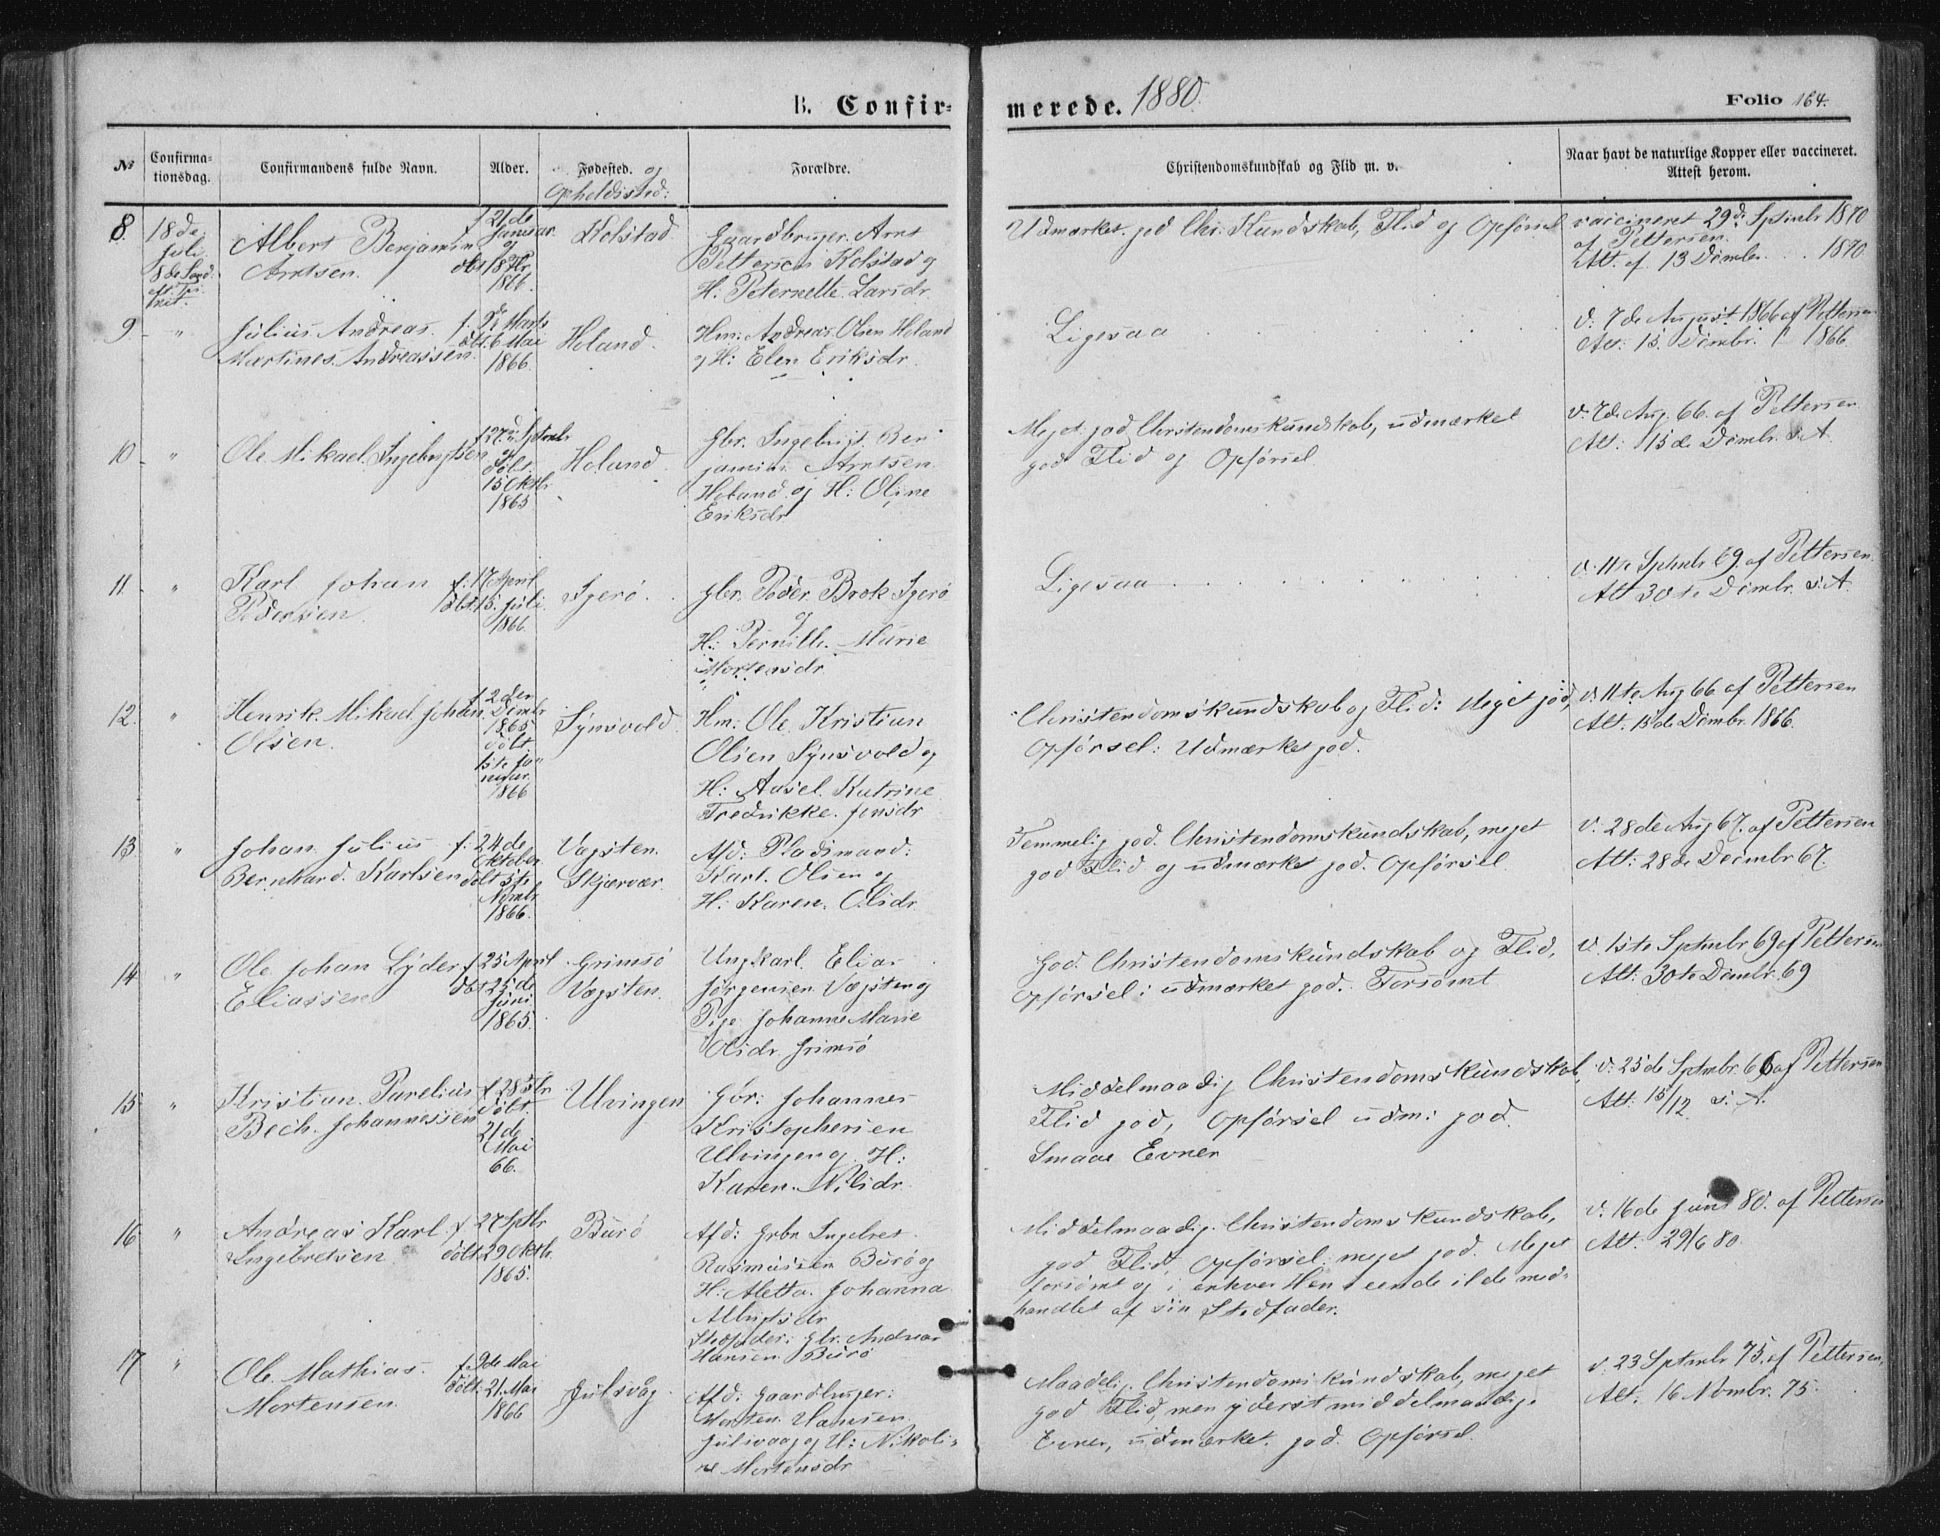 B. Confir-
merede. 1880.
Folio 164.
No
Confirma-
tionsdag.
Confirmandens fulde Navn.
Alder.
Fødested. og
Opholdssted:
Forældre.
Christendomskundskab og Flid m. v.
Naar havt de naturlige Kopper eller vaccineret.
Attest herom.
8.
18de
Juli
8de Sønd.
eft. Tri-
nit.
Albert Benjamin
Arntsen.
f. 21de
Januar
og
døbt 18 Fbr.
1866.
Kolstad
Gaardbruger Arnt
Pettersen Kolstad og
H. Peternelle Larsdr.
Udmærket god Chr. Kundskab, Flid og Opførsel
vaccineret 29de Septmbr 1870
af Pettersen.
Att. af 13 Dcmbr. 1870
9 "
Julius Andreas
Martines Andreassen.
f. 9de Marts
døbt 6 Mai
1866.
Holand.
Hm. Andreas Olsen Holand
og H: Elen Eriksdr.
Ligesaa
v: 7de August 1866 af Pettersen
Att: 15 Dcmbr. 1866.
10 "
Ole Mikael Ingebrigtsen
f 27de Septmbr
og
døbt.
15 Oktbr.
1865
Holand.
Gbr. Ingebrigt Ben-
jamin Arntsen
Holand og H: Oline
Eriksdr
Meget god Christendomskundskab, udmærket
god Flid og Opførsel
v. 7de Aug. 66. af Pettersen
Att: 15de Dcmbr. s. A.
11 "
Karl Johan
Pedersen.
f. 17 April
døbt 15. Juli
1866.
Igerø.
Gbr. Peder Brok Igerø
og
H: Pernille Marie
Mortensdr.
Ligesaa
v. 11te Septmbr 69. af Pettersen.
Att 30te Dcmbr. s. A.
12. "
Henrik Mikael Johan
Olsen.
f. 2den
Dcmbr
1865
døbt.
1ste Ja-
nuar.
1866
Synsvold.
Hm. Ole Kristian
Olsen Synsvold og
H: Katrine
Fredrikke Jensdr
Christendomskundskab og Flid: Meget god,
Opførsel: Udmærket god.
v. 11te Aug 66 af Pettersen
Att. 15de Dcmbr. 1866.
13 "
Johan Julius
Bernhard Karlsen
f. 24de
Oktober
døbt 5te
Nvmbr
1866.
Vægsten.
Skjærvær.
Afd: Pladsmand:
Karl Olsen og
H. Karen Olsdr.
Temmelig god Christendomskundskab, meget
god Flid og udmærket god Opførsel.
v. 28de Aug 67. af Pettersen
Att: 28de Decmbr 67.
14 "
Ole Johan Lyder
Eliassen
f 25 April
døbt 25de
Juni
1865.
Grimsø
Vægsten.
Ungkarl Elias
Jørgensen Vægsten og
Pige Johanne Marie
Olsdr. Grimsø
God Christendomskundskab og Flid,
Opførsel: udmærket god. Forsømt
v. 1ste Septmbr 69 af Pettersen
Att: 30te Dcmbr. 69
15 "
Kristian
Bech Johannessen
døbt.
21de
Mai
66.
Ulvingen
Gbr: Johannes
Kristophersen
Ulvingen og H:
Karen Nilsdr.
Middelmaadig Christendomskundskab,
Flid god, Opførsel udm: god.
Smaae Evner
v: 25de Septmbr. 66 af Pettersen
Att: 15/12 s. A.
16 "
Andreas Karl
Ingebretsen
f 27 Septbr
døbt 29 Oktbr.
1865.
Burø
Afd: Grbr. Ingebret
Rasmussen Burø og
H: Aletta Johanna
Albrigtsdr
Stedfader: Gbr. Andreas
Hansen Burø
Middelmaadig Christendomskundskab,
god Flid, Opførsel: meget god. Meget
forsømt og i enhver Henseende ilde med-
handlet af sin Stedfader.
v. 16de Juni 80. af Pettersen
Att: 29/6 80.
17 "
Ole Mathias
Mortensen.
f. 9de Mai
døbt 21. Mai
1866
Julsvåg.
Afd: Gaardbruger:
Morten Hansen
Julsvaag og H: Nikoli-
ne Mortensdr
Maadelig Christendomskundskab, meget
god Flid, men yderst middelmaadige
Evner, udmærket god Opførsel.
v. 23 Septmbr 75. af Pettersen,
Att. 16 Nvmbr. 75.